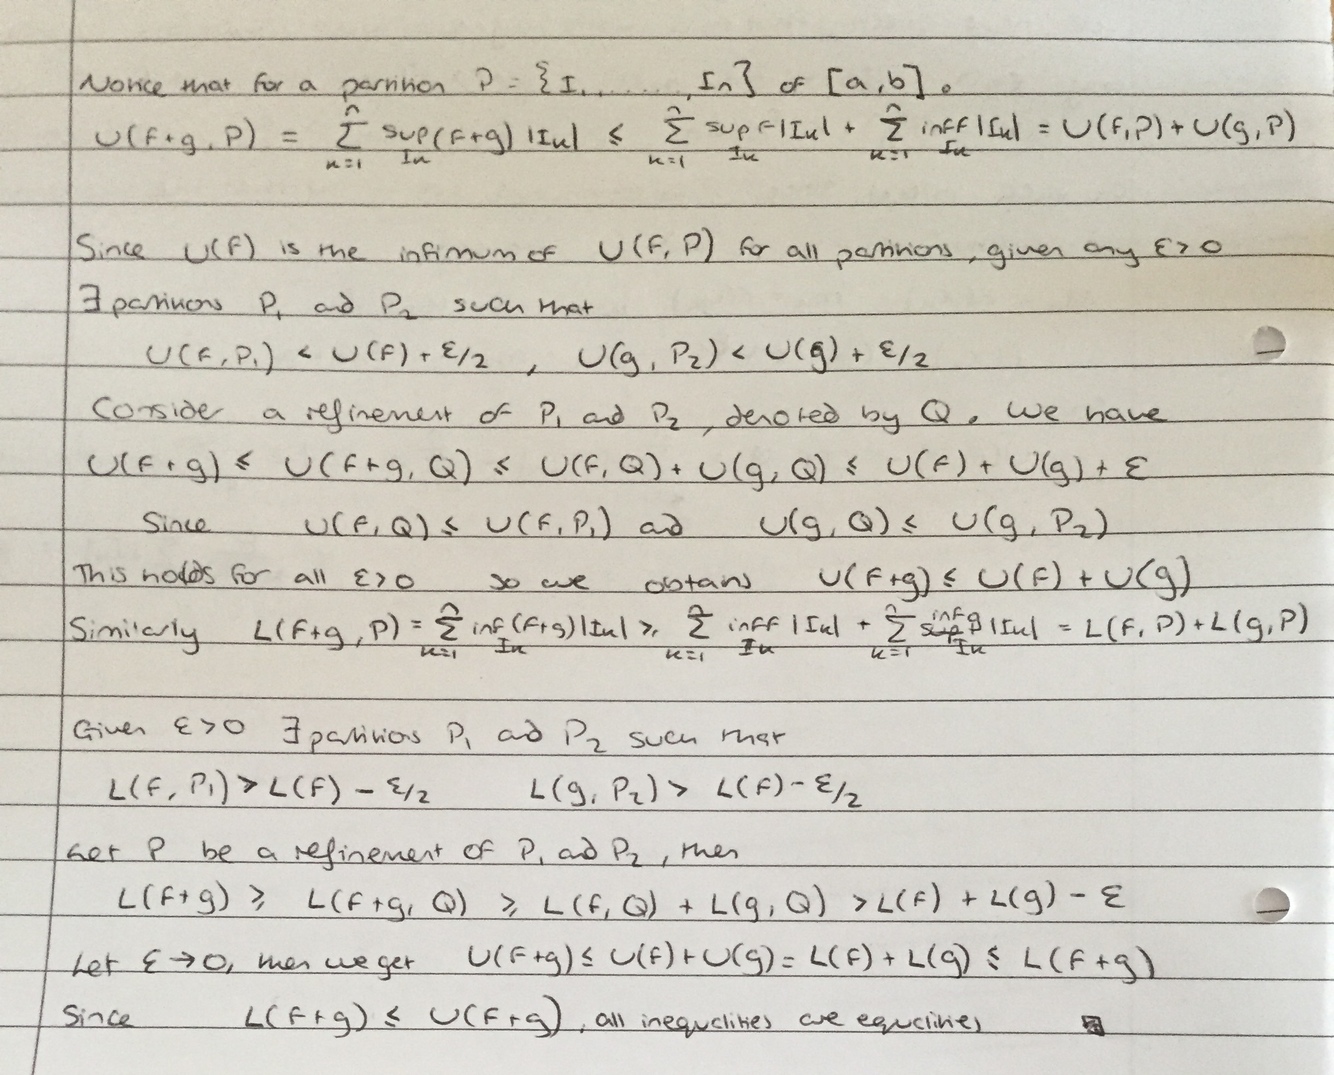 Notice that for a partition P = {I₁, ......., Iₙ} of [a,b].
U(f+g, P) = ∑ₖ₌₁ⁿ sup_{Iₖ} (f+g) |Iₖ| ≤ ∑ₖ₌₁ⁿ sup_{Iₖ} f |Iₖ| + ∑ₖ₌₁ⁿ inf_{Iₖ} f |Iₖ| = U(f,P) + U(g,P)
Since U(f) is the infimum of U(f,P) for all partitions, given any ε>0
∃ partitions P₁ and P₂ such that
U(f,P₁) < U(f) + ε/2 , U(g,P₂) < U(g) + ε/2
Consider a refinement of P₁ and P₂, denoted by Q. We have
U(f+g) ≤ U(f+g, Q) ≤ U(f,Q) + U(g,Q) ≤ U(f) + U(g) + ε
Since U(f,Q) ≤ U(f,P₁) and U(g,Q) ≤ U(g,P₂)
This holds for all ε>0 so we obtains U(f+g) ≤ U(f) + U(g)
Similarly L(f+g,P) = ∑ₖ₌₁ⁿ inf_{Iₖ} (f+g) |Iₖ| ≥ ∑ₖ₌₁ⁿ inf_{Iₖ} f |Iₖ| + ∑ₖ₌₁ⁿ inf_{Iₖ} g |Iₖ| = L(f,P) + L(g,P)
Given ε>0 ∃ partitions P₁ and P₂ such that
L(f,P₁) > L(f) - ε/2 L(g,P₂) > L(f) - ε/2
Let P be a refinement of P₁ and P₂, then
L(f+g) ≥ L(f+g, Q) ≥ L(f,Q) + L(g,Q) > L(f) + L(g) - ε
Let ε→0, then we get U(f+g) ≤ U(f) + U(g) = L(f) + L(g) ≤ L(f+g)
Since L(f+g) ≤ U(f+g), all inequalities are equalities